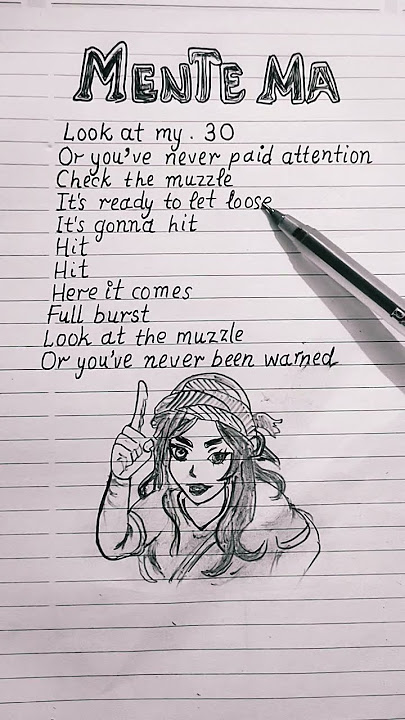 MENTE MA
Look at my . 30
Or you've never paid attention
Check the muzzle
It's ready to let loose
It's gonna hit
Hit
Hit
Here it comes
Full burst
Look at the muzzle
Or you've never been warned